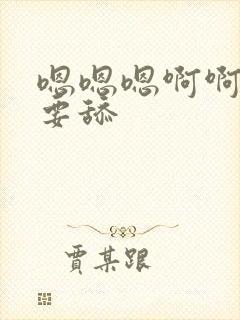 嗯嗯嗯啊啊
要舔
贾某跟